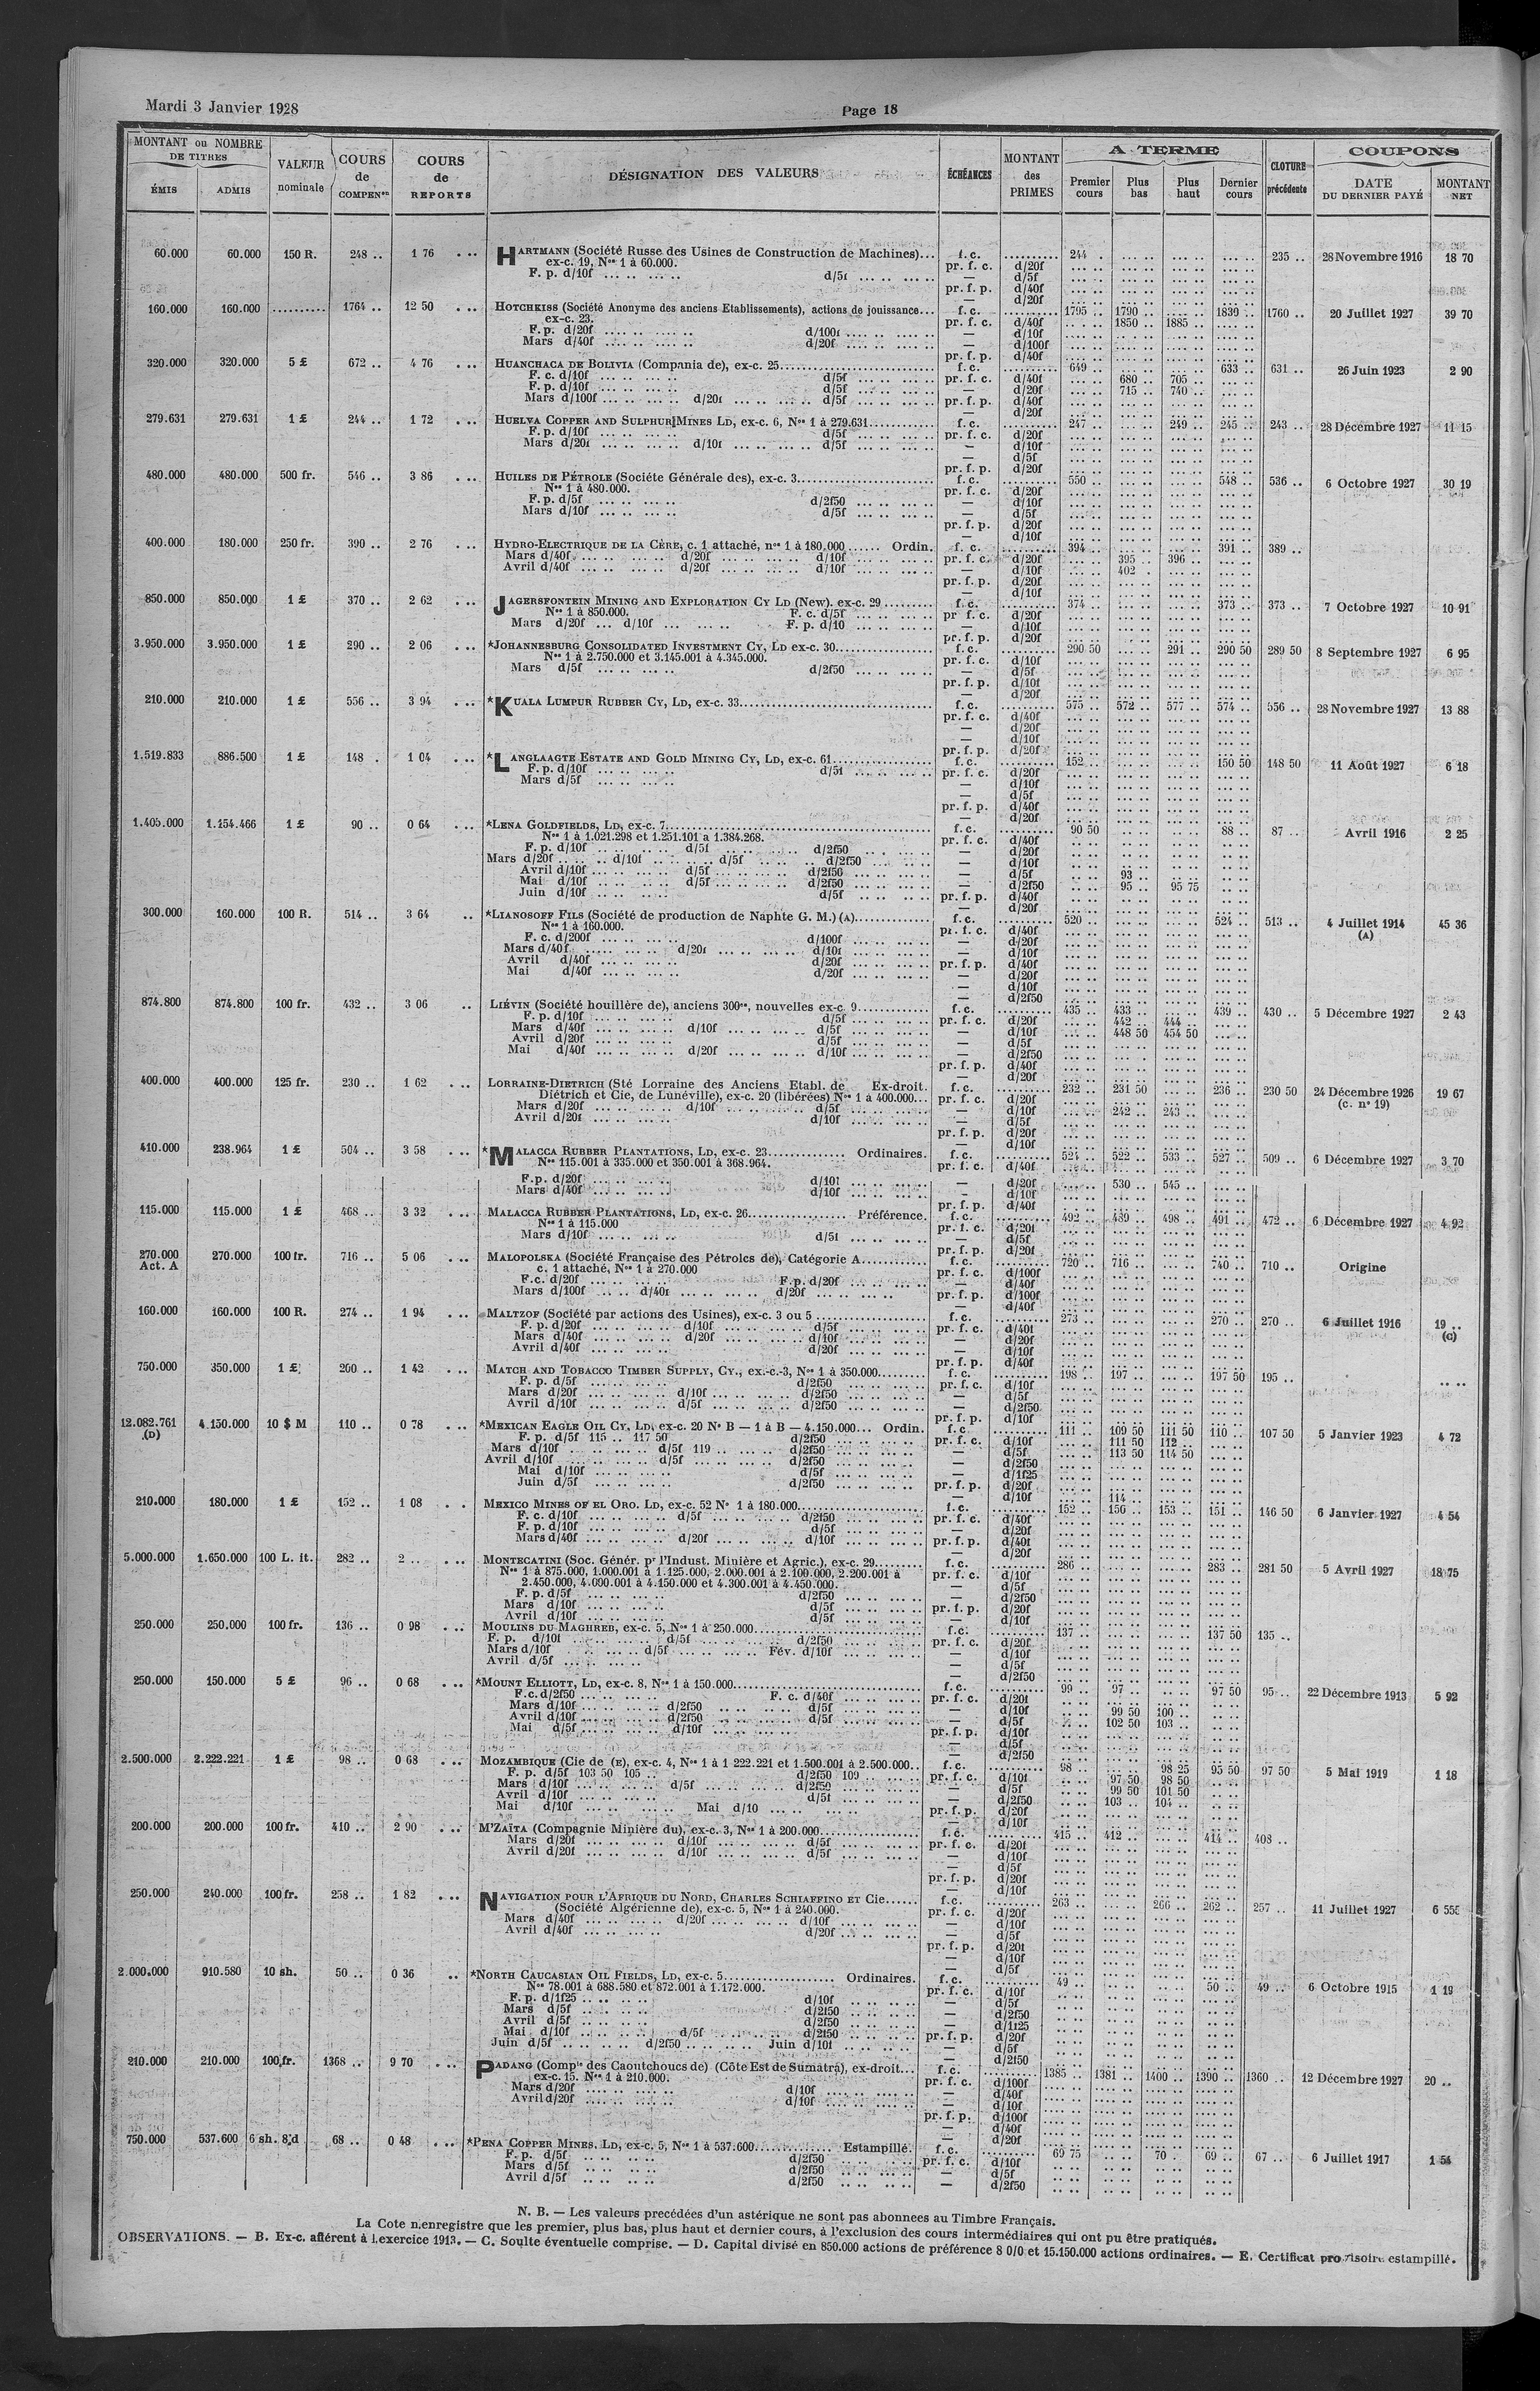 Mardi 3 Janvier 1928
Page 18
MONTANT ou NOMBRE DE TITRES
ÉMIS ADMIS
VALEUR nominale
COURS de COMPENon
COURS de REPORTS
DÉSIGNATION DES VALEURS
ÉCHÉANCES
MONTANT des PRIMES
A TERME
Premier cours Plus bas Plus haut Dernier cours
CLOTURE précédente
COUPONS
DATE DU DERNIER PAYÉ
MONTANT NET
60.000 60.000 150 R. 248 .. 1 76 HARTMANN (Société Russe des Usines de Construction de Machines)... f. c. 244 . 235 .. 28 Novembre 1916 18 70
ex-c. 19, Nos 1 à 60.000. pr. f. c. d/20f
F. p. d/10f d/5f — d/5f
pr. f. p. d/40f
— d/20f
160.000 160.000 .......... 1764 .. 12 50 HOTCHKISS (Société Anonyme des anciens Etablissements), actions de jouissance... f. c. 1795 .. 1790 .. 1839 .. 1760 .. 20 Juillet 1927 39 70
ex-c. 23. pr. f. c. d/40f 1850 .. 1885 ..
F. p. d/20f d/100f — d/10f
Mars d/40f d/20f — d/100f
pr. f. p. d/40f
320.000 320.000 5 £ 672 .. 4 76 HUANCHACA DE BOLIVIA (Compania de), ex-c. 25 f. c. 649 .. 633 .. 631 .. 26 Juin 1923 2 90
F. c. d/10f d/5f pr. f. c. d/40f 680 .. 705 ..
F. p. d/10f d/5f — d/20f 715 .. 740 ..
Mars d/100f d/20f d/5f pr. f. p. d/40f
— d/20f
279.631 279.631 1 £ 244 .. 1 72 HUELVA COPPER AND SULPHUR MINES LD, ex-c. 6, Nos 1 à 279.631 f. c. 247 .. 249 .. 245 .. 243 .. 28 Décembre 1927 11 15
F. p. d/10f d/5f pr. f. c. d/20f
Mars d/20f d/10f d/5f — d/10f
— d/5f
pr. f. p. d/20f
480.000 480.000 500 fr. 546 .. 3 86 HUILES DE PÉTROLE (Sociéte Générale des), ex-c. 3 f. c. 550 .. 548 .. 536 .. 6 Octobre 1927 30 19
Nos 1 à 480.000. pr. f. c. d/20f
F. p. d/5f d/2f50 — d/10f
Mars d/10f d/5f — d/5f
pr. f. p. d/20f
— d/10f
400.000 180.000 250 fr. 390 .. 2 76 HYDRO-ELECTRIQUE DE LA CÈRE, c. 1 attaché, nos 1 à 180.000 Ordin. f. c. 394 .. 391 .. 389 ..
Mars d/40f d/20f d/10f pr. f. c. d/20f 395 .. 396 ..
Avril d/40f d/20f d/10f — d/10f 402 .
pr. f. p. d/20f
— d/10f
850.000 850.000 1 £ 370 .. 2 62 JAGERSFONTEIN MINING AND EXPLORATION CY LD (New). ex-c. 29 f. c. 374 .. 373 .. 373 .. 7 Octobre 1927 10 91
Nos 1 à 850.000. F. c. d/5f pr f. c. d/20f
Mars d/20f d/10f F. p. d/10 — d/10f
pr. f. p. d/20f
3.950.000 3.950.000 1 £ 290 .. 2 06 *JOHANNESBURG CONSOLIDATED INVESTMENT CY, LD ex-c. 30 f. c. 290 50 291 .. 290 50 289 50 8 Septembre 1927 6 95
Nos 1 à 2.750.000 et 3.145.001 à 4.345.000. pr. f. c. d/10f
Mars d/5f d/2f50 — d/5f
pr. f. p. d/10f
— d/20f
210.000 210.000 1 £ 556 .. 3 94 *KUALA LUMPUR RUBBER CY, LD, ex-c. 33 f. c. 575 .. 572 .. 577 .. 574 .. 556 .. 28 Novembre 1927 13 88
pr. f. c. d/40f
— d/20f
— d/10f
pr. f. p. d/20f
1.519.833 886.500 1 £ 148 . 1 04 *LANGLAAGTE ESTATE AND GOLD MINING CY, LD, ex-c. 61 f. c. 152 .. 150 50 148 50 11 Août 1927 6 18
F. p. d/10f d/5f pr. f. c. d/20f
Mars d/5f — d/10f
— d/5f
pr. f. p. d/40f
— d/20f
1.405.000 1.154.466 1 £ 90 .. 0 64 *LENA GOLDFIELDS, LD, ex-c. 7 f. c. 90 50 88 .. 87 .. Avril 1916 2 25
Nos 1 à 1.021.298 et 1.251.101 a 1.384.268. pr. f. c. d/40f
F. p. d/10f d/5f d/2f50 — d/20f
Mars d/20f d/10f d/5f d/2f50 — d/10f
Avril d/10f d/5f d/2f50 — d/5f 93 ..
Mai d/10f d/5f d/2f50 — d/2f50 95 .. 95 75
Juin d/10f d/5f pr. f. p. d/40f
— d/20f
300.000 160.000 100 R. 514 .. 3 64 *LIANOSOFF FILS (Société de production de Naphte G. M.) (A) f. c. 520 .. 524 .. 513 .. 4 Juillet 1914 (A) 45 36
Nos 1 à 160.000. pr. f. c. d/40f
F. c. d/200f d/100f — d/20f
Mars d/40f d/20f d/10f — d/10f
Avril d/40f d/20f pr. f. p. d/40f
Mai d/40f d/20f — d/20f
— d/10f
— d/2f50
874.800 874.800 100 fr. 432 .. 3 06 LIÉVIN (Société houillère de), anciens 300es, nouvelles ex-c. 9 f. c. 435 .. 433 .. 439 .. 430 .. 5 Décembre 1927 2 43
F. p. d/10f d/5f pr. f. c. d/20f 442 .. 444 ..
Mars d/40f d/10f d/5f — d/10f 448 50 454 50
Avril d/20f d/5f — d/5f
Mai d/40f d/20f d/10f — d/2f50
pr. f. p. d/40f
— d/20f
400.000 400.000 125 fr. 230 .. 1 62 LORRAINE-DIETRICH (Sté Lorraine des Anciens Etabl. de Ex-droit. f. c. 232 .. 231 50 236 .. 230 50 24 Décembre 1926 19 67
Diétrich et Cie, de Lunéville), ex-c. 20 (libérées) Nos 1 à 400.000... pr. f. c. d/20f (c. no 19)
Mars d/20f d/10f d/5f — d/10f 242 .. 243 ..
Avril d/20f d/10f — d/5f
pr. f. p. d/20f
— d/10f
410.000 238.964 1 £ 504 .. 3 58 *MALACCA RUBBER PLANTATIONS, LD, ex-c. 23 Ordinaires. f. c. 524 .. 522 .. 533 .. 527 .. 509 .. 6 Décembre 1927 3 70
Nos 115.001 à 335.000 et 350.001 à 368.964. pr. f. c. d/40f
F.p. d/20f d/10f — d/20f 530 .. 545 ..
Mars d/40f d/10f — d/10f
pr. f. p. d/40f
115.000 115.000 1 £ 468 .. 3 32 MALACCA RUBBER PLANTATIONS, LD, ex-c. 26 Préférence. f. c. 492 .. 489 .. 498 .. 491 .. 472 .. 6 Décembre 1927 4 92
Nos 1 à 115.000 pr. f. c. d/20f
Mars d/10f d/5f — d/5f
pr. f. p. d/20f
270.000 Act. A 270.000 100 fr. 716 .. 5 06 MALOPOLSKA (Société Française des Pétroles de), Catégorie A f. c. 720 .. 716 .. 740 .. 710 .. Origine
c. 1 attaché, Nos 1 à 270.000 pr. f. c. d/100f
F.c. d/20f F.p. d/20f — d/40f
Mars d/100f d/40f d/20f pr. f. p. d/100f
— d/40f
160.000 160.000 100 R. 274 .. 1 94 MALTZOF (Société par actions des Usines), ex-c. 3 ou 5 f. c. 273 .. 270 .. 270 .. 6 Juillet 1916 19 .. (C)
F. p. d/20f d/10f d/5f pr. f. c. d/40f
Mars d/40f d/20f d/10f — d/20f
Avril d/40f d/20f — d/10f
pr. f. p. d/40f
750.000 350.000 1 £ 200 .. 1 42 MATCH AND TOBACCO TIMBER SUPPLY, CY., ex.-c.-3, Nos 1 à 350.000 f. c. 198 .. 197 .. 197 50 195 ..
F. p. d/5f d/2f50 pr. f. c. d/10f
Mars d/20f d/10f d/2f50 — d/5f
Avril d/10f d/5f d/2f50 — d/2f50
pr. f. p. d/10f
12.082.761 (D) 4.150.000 10 $ M 110 .. 0 78 *MEXICAN EAGLE OIL CY, LD, ex-c. 20 No B — 1 à B — 4.150.000... Ordin. f. c 111 .. 109 50 111 50 110 .. 107 50 5 Janvier 1923 4 72
F. p. d/5f 115 .. 117 50 d/2f50 pr. f. c. d/10f 111 50 112 ..
Mars d/10f d/5f 119 .. d/2f50 — d/5f 113 50 114 50
Avril d/10f d/5f d/2f50 — d/2f50
Mai d/10f d/5f — d/1f25
Juin d/5f d/2f50 pr. f. p. d/20f
— d/10f 114 ..
210.000 180.000 1 £ 152 .. 1 08 MEXICO MINES OF EL ORO. LD, ex-c. 52 No 1 à 180.000 f. c. 152 .. 150 .. 153 .. 151 .. 146 50 6 Janvier 1927 4 54
F. c. d/10f d/5f d/2f50 pr. f. c. d/40f
F. p. d/10f d/5f — d/20f
Mars d/40f d/20f d/10f pr. f. p. d/40f
— d/20f
5.000.000 1.650.000 100 L. it. 282 .. 2 .. MONTECATINI (Soc. Génér. pr l'Indust. Minière et Agric.), ex-c. 29 f. c. 286 .. 283 .. 281 50 5 Avril 1927 18 75
Nos 1 à 875.000, 1.000.001 à 1.125.000, 2.000.001 à 2.100.000, 2.200.001 à pr. f. c. d/10f
2.450.000, 4.000.001 à 4.150.000 et 4.300.001 à 4.450.000. — d/5f
F. p. d/5f d/2f50 — d/2f50
Mars d/10f d/5f pr. f. p. d/20f
Avril d/10f d/5f — d/10f
250.000 250.000 100 fr. 136 .. 0 98 MOULINS DU MAGHREB, ex-c. 5, Nos 1 à 250.000 f. c. 137 .. 137 50 135 ..
F. p. d/10f d/5f d/2f50 pr. f. c. d/20f
Mars d/10f d/5f Fév. d/10f — d/10f
Avril d/5f — d/5f
— d/2f50
250.000 150.000 5 £ 96 .. 0 68 *MOUNT ELLIOTT, LD, ex-c. 8, Nos 1 à 150.000 f. c. 99 .. 97 .. 97 50 95 .. 22 Décembre 1913 5 92
F.c. d/2f50 F. c. d/40f pr. f. c. d/20f
Mars d/10f d/2f50 d/5f — d/10f 99 50 100 ..
Avril d/10f d/2f50 d/5f — d/5f 102 50 103 ..
Mai d/5f d/10f pr. f. p. d/10f
— d/5f
— d/2f50
2.500.000 2.222.221 1 £ 98 .. 0 68 MOZAMBIQUE (Cie de (E), ex-c. 4, Nos 1 à 1 222.221 et 1.500.001 à 2.500.000.. f. c. 98 .. 98 25 95 50 97 50 5 Mai 1919 1 18
F. p. d/5f 103 50 105 .. d/2f50 109 pr. f. c. d/10f 97 50 98 50
Mars d/10f d/5f d/2f50 — d/5f 99 50 101 50
Avril d/10f d/5f — d/2f50 103 .. 104 ..
Mai d/10f Mai d/10 pr. f. p. d/20f
— d/10f
200.000 200.000 100 fr. 410 .. 2 90 M'ZAÏTA (Compagnie Minière du), ex-c. 3, Nos 1 à 200.000 f. c. 415 .. 412 .. 414 .. 408 ..
Mars d/20f d/10f d/5f pr. f. c. d/20f
Avril d/20f d/10f d/5f — d/10f
— d/5f
pr. f. p. d/20f
— d/10f
250.000 240.000 100 fr. 258 .. 1 82 NAVIGATION POUR L'AFRIQUE DU NORD, CHARLES SCHIAFFINO ET Cie f.c. 263 .. 266 .. 262 .. 257 .. 11 Juillet 1927 6 55
(Société Algérienne de), ex-c. 5, Nos 1 à 240.000. pr. f. c. d/20f
Mars d/40f d/20f d/10f — d/10f
Avril d/40f d/20f — d/5f
pr. f. p. d/20f
— d/10f
— d/5f
2.000.000 910.580 10 sh. 50 .. 0 36 *NORTH CAUCASIAN OIL FIELDS, LD, ex-c. 5 Ordinaires. f. c. 49 .. 50 .. 49 .. 6 Octobre 1915 1 19
Nos 78.001 à 688.580 et 872.001 à 1.172.000. pr. f. c. d/10f
F. p. d/1f25 d/10f — d/5f
Mars d/5f d/2f50 — d/2f50
Avril d/5f d/2f50 — d/1f25
Mai d/10f d/5f d/2f50 pr. f. p. d/20f
Juin d/5f d/2f50 Juin d/10f — d/5f
— d/2f50
210.000 210.000 100 fr. 1368 .. 9 70 PADANG (Compie des Caoutchoucs de) (Côte Est de Sumatra), ex-droit... f. c. 1385 .. 1381 .. 1400 .. 1390 .. 1360 .. 12 Décembre 1927 20 ..
ex-c. 15. Nos 1 à 210.000. pr. f. c. d/100f
Mars d/20f d/10f — d/40f
Avril d/20f d/10f — d/10f
pr. f. p. d/100f
— d/40f
— d/20f
750.000 537.600 6 sh. 8 d 68 .. 0 48 *PENA COPPER MINES. LD, ex-c. 5, Nos 1 à 537.600 Estampillé. f. c. 69 75 70 . 69 .. 67 .. 6 Juillet 1917 1 54
F. p. d/5f d/2f50 pr. f. c. d/10f
Mars d/5f d/2f50 — d/5f
Avril d/5f d/2f50 — d/2f50
N. B. — Les valeurs precédées d'un astérique ne sont pas abonnees au Timbre Français.
La Cote n.enregistre que les premier, plus bas, plus haut et dernier cours, à l'exclusion des cours intermédiaires qui ont pu être pratiqués.
OBSERVATIONS. — B. Ex-c. afférent à l.exercice 1913. — C. Soulte éventuelle comprise. — D. Capital divisé en 850.000 actions de préférence 8 0/0 et 15.150.000 actions ordinaires. — E. Certificat provisoire estampillé.